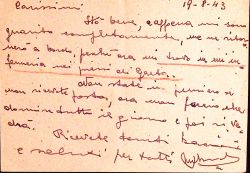 Carissimi 19-8-43
Sto bene, e appena mi sono
guarito completamente, me ne ritor
nerò a bordo, perchè ora mi trovo in una in
fermeria nei pressi di Gaeta.
Non state in pensiero se
non ricevete posta, ora non faccio altro
che dormire tutto il giorno e poi si ve
drà. Ricevete tanti bacioni
e saluti per tutti